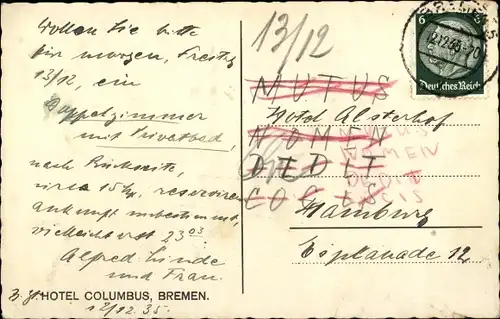 Wollen Sie bitte
für morgen, Freitag
13/12, ein
Doppelzimmer
mit Privatbad,
nach Rückseite,
circa 15 h, reservieren
ankunft unbestimmt,
vielleicht erst 23 03
Alfred Linde
und Frau.
HOTEL COLUMBUS, BREMEN.
12/12.35.
13/12
6
12.12.35
Deutsches Reich
MUTUS
Hotel Alsterhof
NOMEN
DEDIT
COCIS
NOMEN
DEDIT
COCIS
Hamburg
Esplanade 12